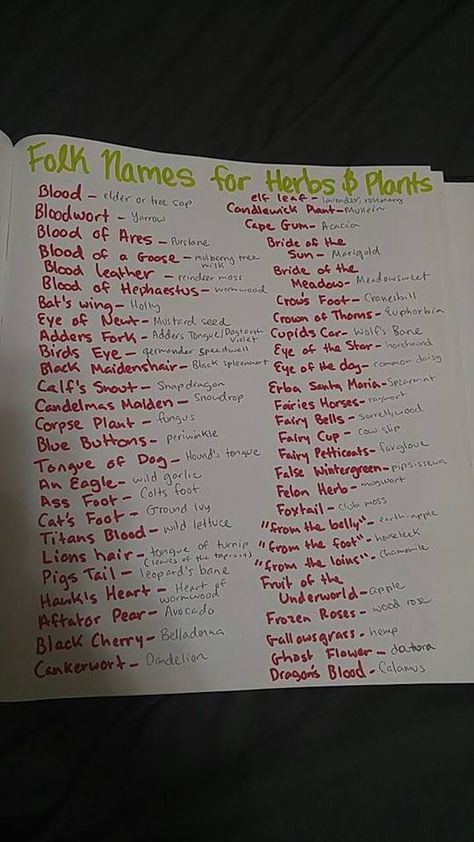 Folk Names for Herbs & Plants
Blood – elder or tree sap
Bloodwort – Yarrow
Blood of Ares – Purslane
Blood of a Goose – mulberry tree
milk
Blood leather – reindeer moss
Blood of Hephaestus – wormwood
Bat's wing – Holly
Eye of Newt – Mustard seed
Adders Fork – Adders Tongue/Dogtooth
violet
Birds Eye – germander speedwell
Black Maidenshair – Black spleenwort
Calf's Snout – Snapdragon
Candelmas Maiden – Snowdrop
Corpse Plant – fungus
Blue Buttons – periwinkle
Tongue of Dog – Hound's tongue
An Eagle – wild garlic
Ass Foot – Colts foot
Cat's Foot – Ground Ivy
Titans Blood – wild lettuce
Lions hair – tongue of turnip
(leaves of the taproot)
Pigs Tail – leopard's bane
Hawks Heart – Heart of
wormwood
Aftator Pear – Avocado
Black Cherry – Belladonna
Cankerwort – Dandelion
elf leaf – lavender, rosemary
Candlewick Plant – Mullein
Cape Gum – Acacia
Bride of the
Sun – Marigold
Bride of the
Meadow – Meadowsweet
Crows Foot – Cranesbill
Crown of Thorns – Euphorbia
Cupids Car – Wolf's Bane
Eye of the Star – horehound
Eye of the day – common daisy
Erba Santa Maria – Spearmint
Fairies Horses – ragwort
Fairy Bells – sorrelywood
Fairy Cup – cowslip
Fairy Petticoats – foxglove
False Wintergreen – pipsissewa
Felon Herb – mugwort
Foxtail – club moss
"from the belly" – earth-apple
"from the foot" – houseleek
"from the loins" – Chamomile
Fruit of the
Underworld – apple
Frozen Roses – wood rose
Gallowsgrass – hemp
Ghost Flower – datura
Dragon's Blood – Calamus